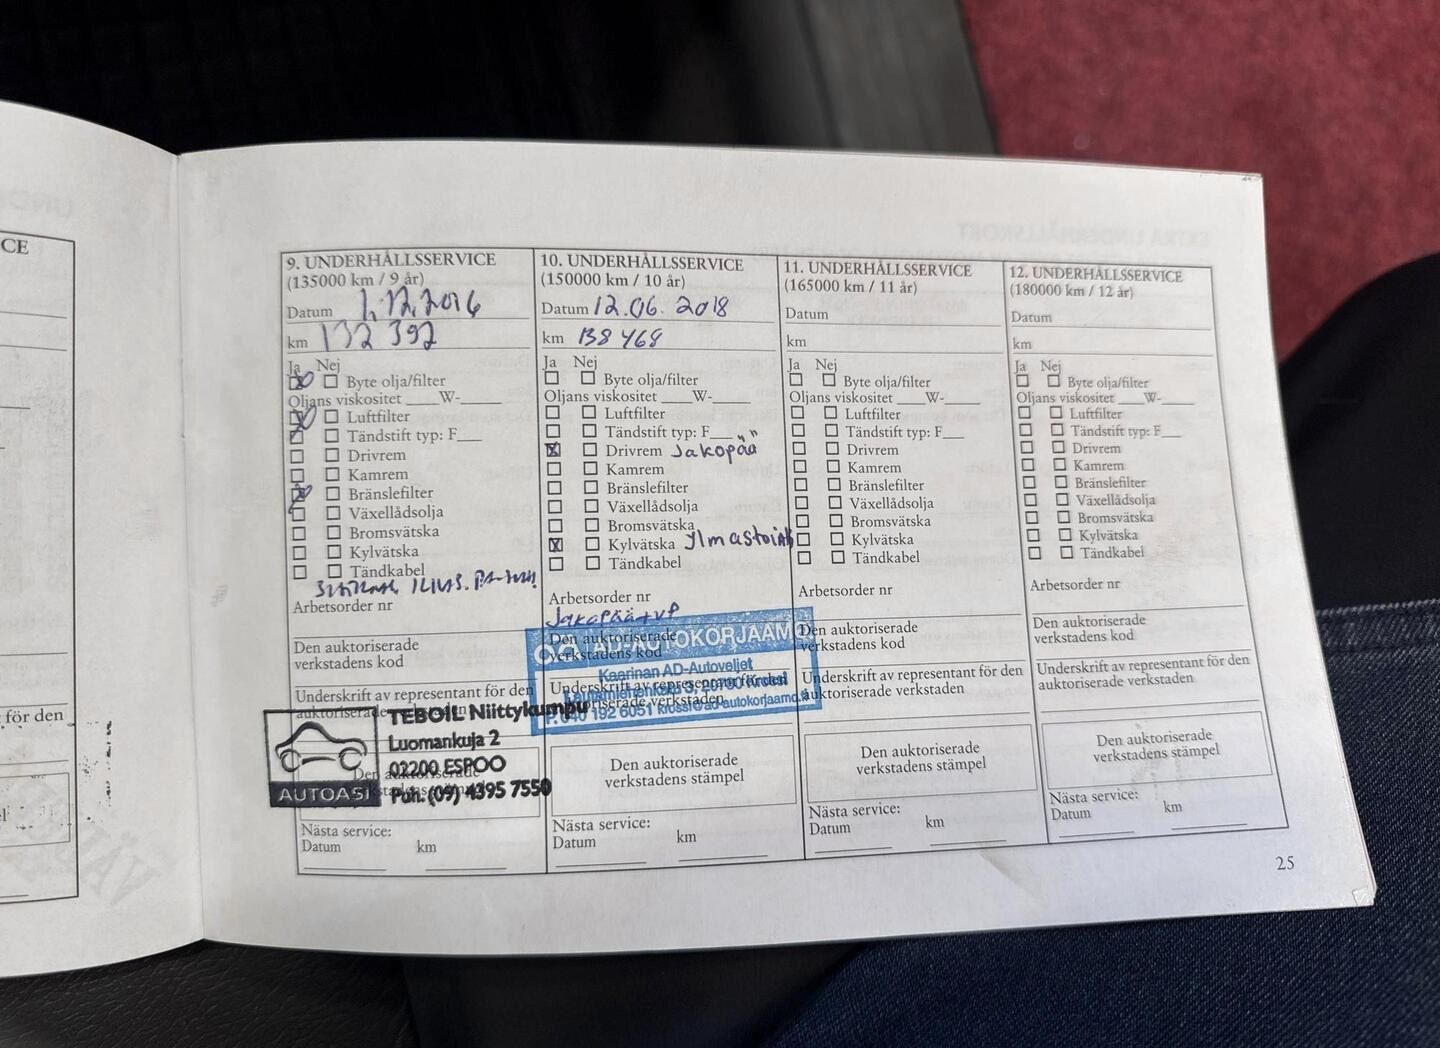 CE
för den
9. UNDERHÅLLSSERVICE
(135000 km / 9 år)
Datum 1.12.2016
km 132 392
Ja Nej
Byte olja/filter
Oljans viskositet ____W-____
Luftfilter
Tändstift typ: F___
Drivrem
Kamrem
Bränslefilter
Växellådsolja
Bromsvätska
Kylvätska
Tändkabel
Arbetsorder nr
Den auktoriserade
verkstadens kod
Underskrift av representant för den
auktoriserade verkstaden
TEBOIL Niittykumpu
Luomankuja 2
02200 ESPOO
Puh. (09) 4395 7550
AUTOASI
Nästa service:
Datum km
10. UNDERHÅLLSSERVICE
(150000 km / 10 år)
Datum 12.06.2018
km 138 468
Ja Nej
Byte olja/filter
Oljans viskositet ____W-____
Luftfilter
Tändstift typ: F___
Drivrem Jakopää
Kamrem
Bränslefilter
Växellådsolja
Bromsvätska
Kylvätska
Tändkabel
Arbetsorder nr
Jakopää + vp
Den auktoriserade
verkstadens kod
AD-AUTOKORJAAMO
Kaarinan AD-Autoveljet
Underskrift av representant för den
auktoriserade verkstaden
P. 040 192 6051 krossi@ad-autokorjaamo.fi
Den auktoriserade
verkstadens stämpel
Nästa service:
Datum km
11. UNDERHÅLLSSERVICE
(165000 km / 11 år)
Datum
km
Ja Nej
Byte olja/filter
Oljans viskositet ____W-____
Luftfilter
Tändstift typ: F___
Drivrem
Kamrem
Bränslefilter
Växellådsolja
Bromsvätska
Kylvätska
Tändkabel
Arbetsorder nr
Den auktoriserade
verkstadens kod
Underskrift av representant för den
auktoriserade verkstaden
Den auktoriserade
verkstadens stämpel
Nästa service:
Datum km
12. UNDERHÅLLSSERVICE
(180000 km / 12 år)
Datum
km
Ja Nej
Byte olja/filter
Oljans viskositet ____W-____
Luftfilter
Tändstift typ: F___
Drivrem
Kamrem
Bränslefilter
Växellådsolja
Bromsvätska
Kylvätska
Tändkabel
Arbetsorder nr
Den auktoriserade
verkstadens kod
Underskrift av representant för den
auktoriserade verkstaden
Den auktoriserade
verkstadens stämpel
Nästa service:
Datum km
25